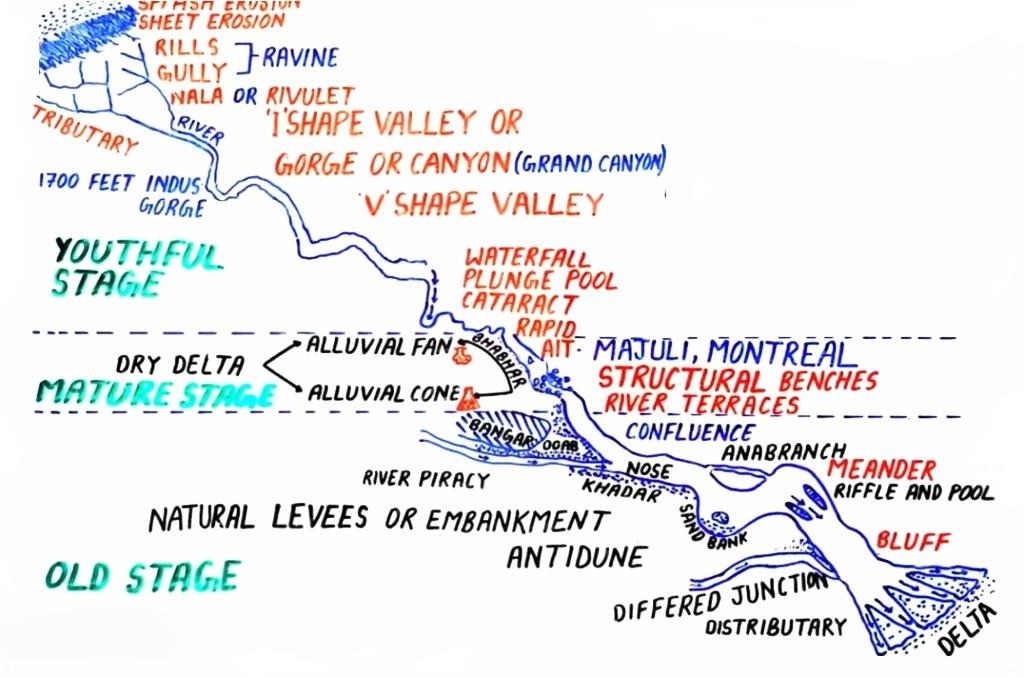 SPLASH EROSION
SHEET EROSION
RILLS
GULLY
RAVINE
NALA OR RIVULET
TRIBUTARY
RIVER
'I' SHAPE VALLEY OR
GORGE OR CANYON (GRAND CANYON)
1700 FEET INDUS
GORGE
'V' SHAPE VALLEY
YOUTHFUL
STAGE
WATERFALL
PLUNGE POOL
CATARACT
RAPID
AIT - MAJULI, MONTREAL
ALLUVIAL FAN
BHABHAR
DRY DELTA
STRUCTURAL BENCHES
MATURE STAGE
ALLUVIAL CONE
RIVER TERRACES
BANGAR
DOAB
CONFLUENCE
ANABRANCH
NOSE
MEANDER
RIFFLE AND POOL
RIVER PIRACY
KHADAR
NATURAL LEVEES OR EMBANKMENT
SAND BANK
ANTIDUNE
BLUFF
OLD STAGE
DIFFERED JUNCTION
DISTRIBUTARY
DELTA